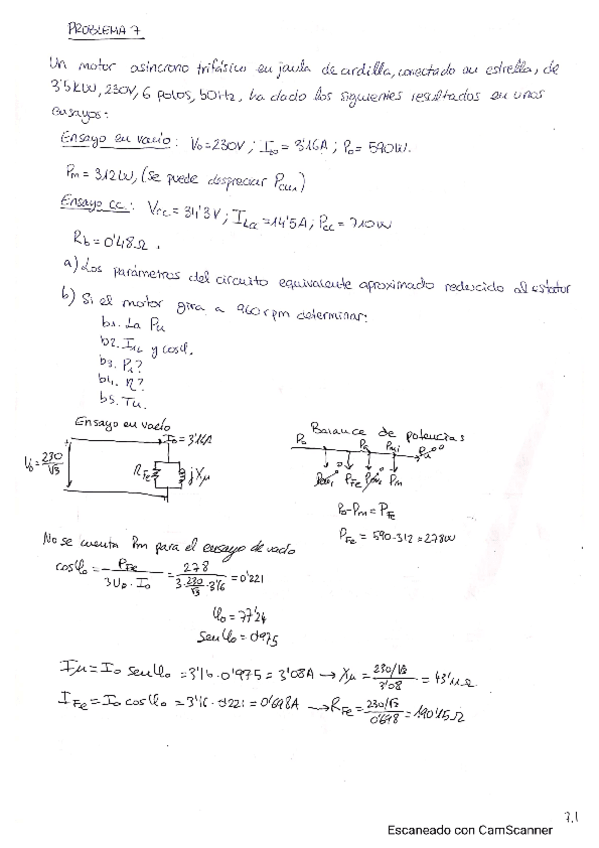 PROBLEMA 7
Un motor asíncrono trifásico en jaula de ardilla, conectado en estrella, de
3'5kW, 230V, 6 polos, 50Hz, ha dado los siguientes resultados en unos
ensayos:
Ensayo en vacío: V₀=230V; I₀=3'16A; P₀=590W.
Pm=312W, (se puede despreciar Pcu₁)
Ensayo cc: Vcc=34'3V; I₁cc=14'5A; Pcc=710W
Rb=0'48Ω.
a) Los parámetros del circuito equivalente aproximado reducido al estator
b) Si el motor gira a 960rpm determinar:
b1. La Pu
b2. I₁L y cosφ.
b3. P₁?
b4. η?
b5. Tu.
Ensayo en vacío
I₀=3'16A
V₀=230/√3
RFe
jXμ
Balance de potencias
P₀ Pa Pmi Pu
PFe Pm
P₀-Pm=PFe
PFe = 590-312=278W
No se cuenta Pm para el ensayo de vacío
cosφ₀= PFe/(3U₀·I₀) = 278/(3·230/√3·3'16) =0'221
φ₀=77'24
senφ₀=0'975
Iμ=I₀ senφ₀=3'16·0'975=3'08A → Xμ= (230/√3)/3'08 = 43'11Ω
IFe=I₀cosφ₀=3'16·0'221=0'698A → RFe= (230/√3)/0'698 =190'15Ω
7.1
Escaneado con CamScanner